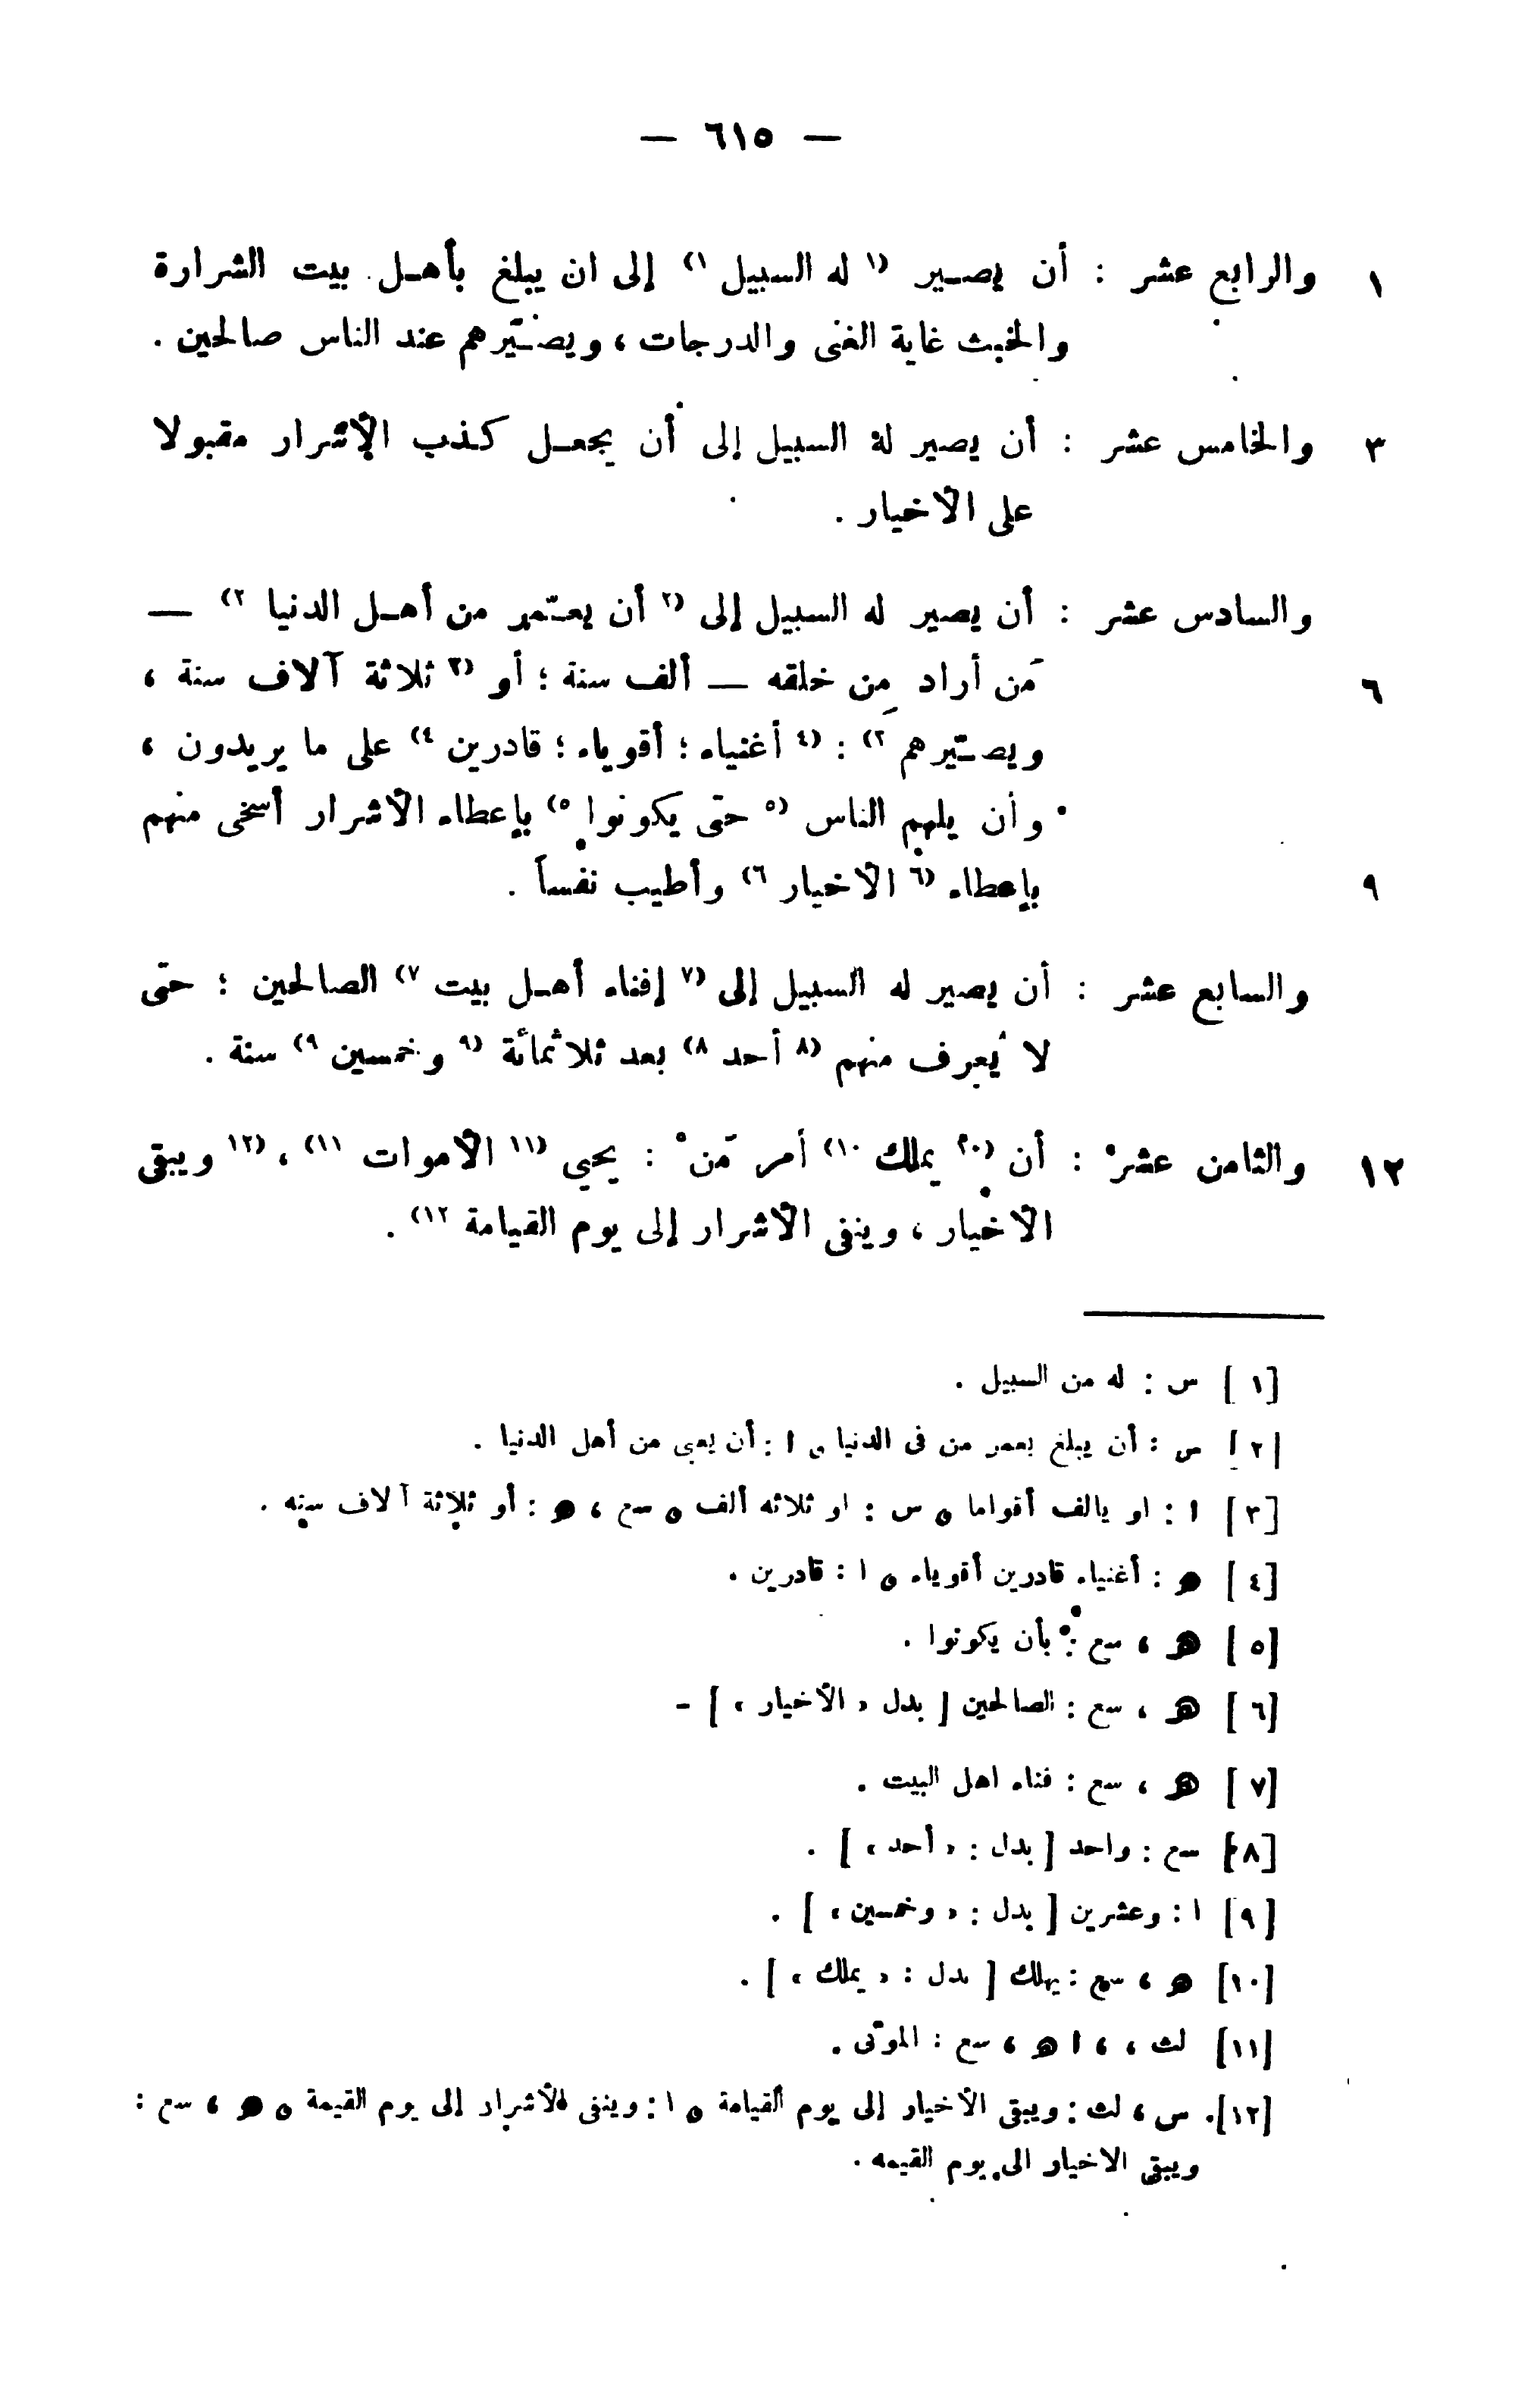 — ٦١٥ —
١ والرابع عشر : أن يصير (١ له السبيل ١) إلى ان يبلغ بأهل بيت الشرارة
والخبث غاية الغنى والدرجات ، ويصيّرهم عند الناس صالحين .
٣ والخامس عشر : أن يصير له السبيل إلى أن يجعل كذب الأشرار مقبولا
على الأخيار .
والسادس عشر : أن يصير له السبيل إلى (٢ أن يعتمّر من أهل الدنيا ٢) —
٦ مَن أراد مِن خلقه — ألف سنة ؛ أو (٣ ثلاثة آلاف سنة ،
ويصيّرهم ٣) : (٤ أغنياء ؛ أقوياء ؛ قادرين ٤) على ما يريدون ،
وأن يلهم الناس (٥ حتى يكونوا ٥) بإعطاء الأشرار أسخى منهم
٩ بإعطاء (٦ الأخيار ٦) وأطيب نفساً .
والسابع عشر : أن يصير له السبيل إلى (٧ إفناء أهل بيت ٧) الصالحين ؛ حتّى
لا يُعرف منهم (٨ أحد ٨) بعد ثلاثمائة (٩ وخمسين ٩) سنة .
١٢ والثامن عشرْ : أن (١٠ يملك ١٠) أمر مَنْ : يحيي (١١ الأموات ١١) ، (١٢ ويبقى
الأخيار ، وينفى الأشرار إلى يوم القيامة ١٢) .
[١] س : له من السبيل .
[٢] س : أن يبلغ بعمر من فى الدنيا ه ا : أن يعى من أهل الدنيا .
[٣] ا : او يالف أقواما ه س : او ثلاثه ألف ه سع ، ه : أو ثلاثة آلاف سنه .
[٤] ه : أغنياء قادرين أقوياء ه ا : قادرين .
[٥] ه ، سع : بأن يكونوا .
[٦] ه ، سع : الصالحين [ بدل « الأخيار » ] -
[٧] ه ، سع : فناء اهل البيت .
[٨] سع : واحد [ بدل : « أحد » ] .
[٩] ا : وعشرين [ بدل : « وخمسين » ] .
[١٠] ه ، سع : يهلك [ بدل : « يملك » ] .
[١١] لث ، ، ا ه ، سع : الموتى .
[١٢] . س ، لث : ويبقى الأخيار إلى يوم القيامة ه ا : وينفى الأشرار إلى يوم القيمة ه ه ، سع :
ويبقى الاخيار الى يوم القيمه .